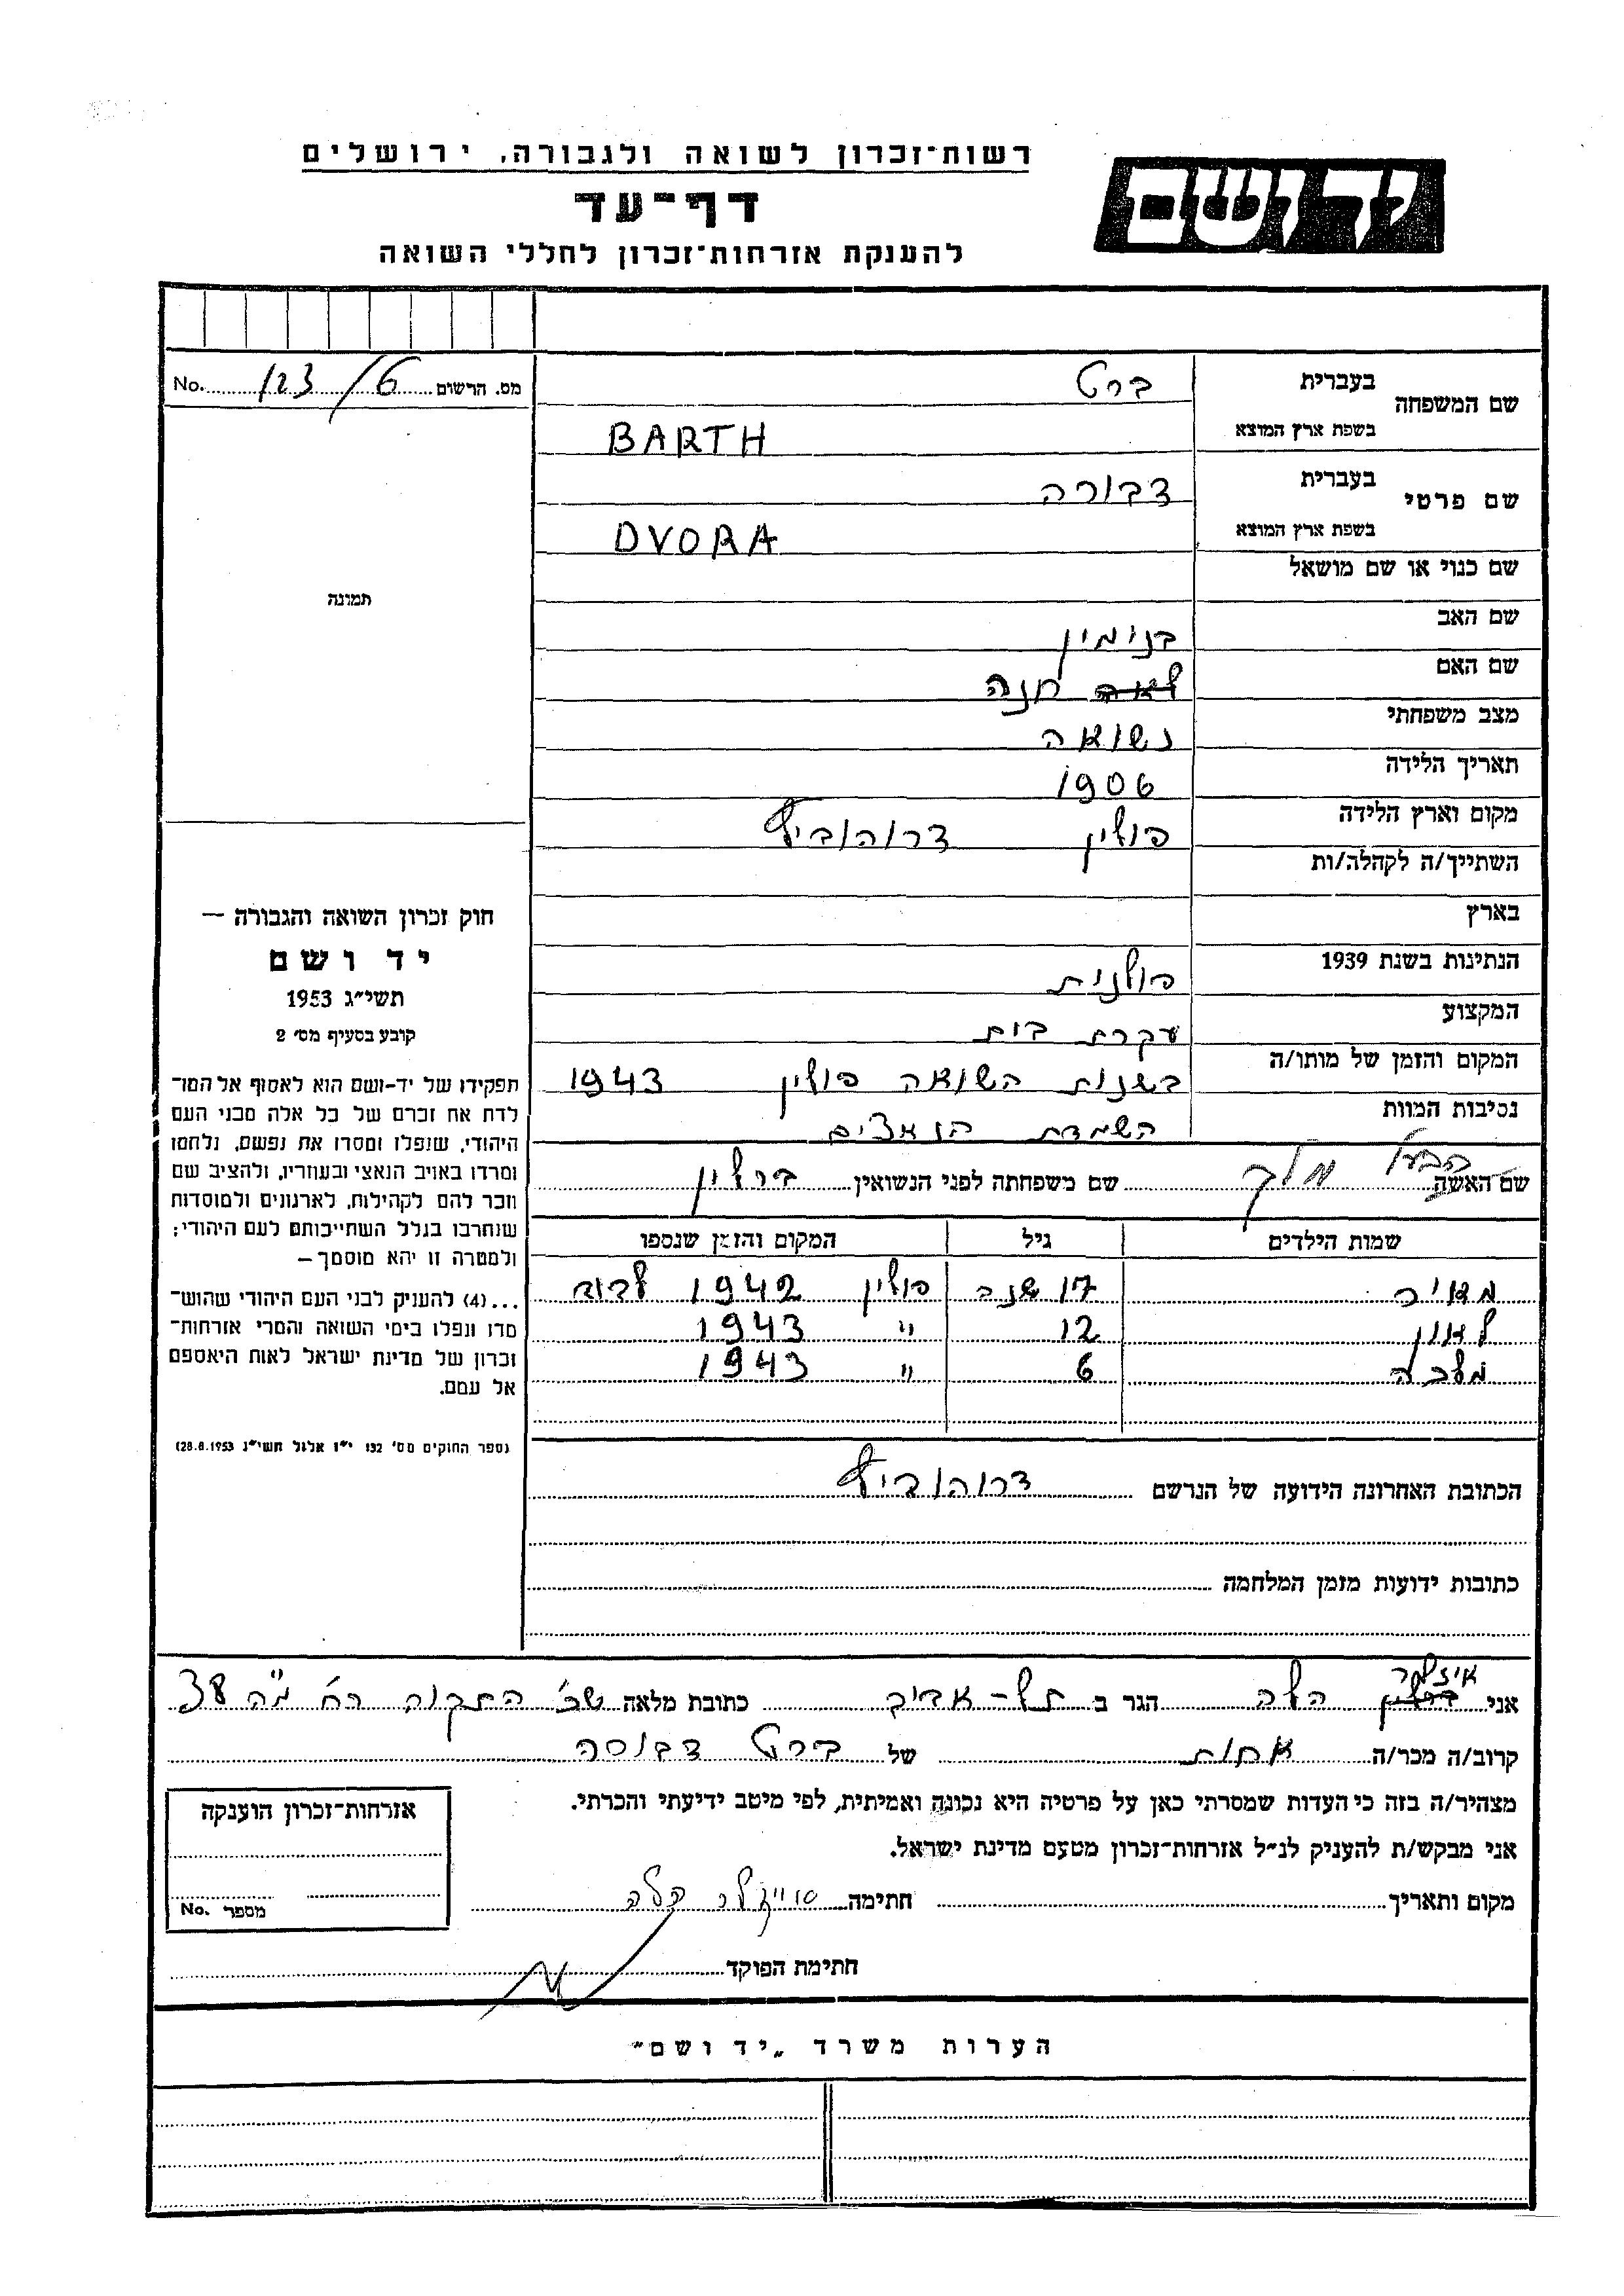 רשות־זכרון לשואה ולגבורה, ירושלים
יד ושם
דף־עד
להענקת אזרחות־זכרון לחללי השואה
מס. הרשום 6/123 No.
שם המשפחה בעברית ברט
בשפת ארץ המוצא BARTH
שם פרטי בעברית דבורה
בשפת ארץ המוצא DVORA
שם כנוי או שם מושאל
תמונה
שם האב בנימין
שם האם לאה חנה
מצב משפחתי נשואה
תאריך הלידה 1906
מקום וארץ הלידה פולין דרוהוביץ
השתייך/ה לקהלה/ות
בארץ
הנתינות בשנת 1939 פולנית
המקצוע עקרת בית
המקום והזמן של מותו/ה בשנות השואה פולין 1943
נסיבות המוות השמדת הנאצים
שם האשה הבעל מלך שם משפחתה לפני הנשואין ברלין
שמות הילדים גיל המקום והזמן שנספו
מאיר 17 שנה פולין 1942
לאון 12 " 1943
מלכה 6 " 1943
חוק זכרון השואה והגבורה —
יד ושם
תשי"ג 1953
קובע בסעיף מס' 2
תפקידו של יד-ושם הוא לאסוף אל המו־
לדת את זכרם של כל אלה מבני העם
היהודי, שנפלו ומסרו את נפשם, נלחמו
ומרדו באויב הנאצי ובעוזריו, ולהציב שם
וזכר להם לקהילות, לארגונים ולמוסדות
שנחרבו בגלל השתייכותם לעם היהודי;
ולמטרה זו יהא מוסמך —
...(4) להעניק לבני העם היהודי שהוש־
מדו ונפלו בימי השואה והמרי אזרחות־
זכרון של מדינת ישראל לאות היאספם
אל עמם.
(ספר החוקים מס' 132 י"ז אלול תשי"ג 28.8.1953)
הכתובת האחרונה הידועה של הנרשם דרוהוביץ
כתובות ידועות מזמן המלחמה
אני הלה הגר ב תל-אביב כתובת מלאה שכ' התקוה רח' 38
קרוב/ה מכר/ה אחות של ברט
מצהיר/ה בזה כי העדות שמסרתי כאן על פרטיה היא נכונה ואמיתית, לפי מיטב ידיעתי והכרתי.
אני מבקש/ת להעניק לנ"ל אזרחות־זכרון מטעם מדינת ישראל.
מקום ותאריך חתימה הלה
חתימת הפוקד
אזרחות־זכרון הוענקה
מספר No.
הערות משרד "יד ושם"